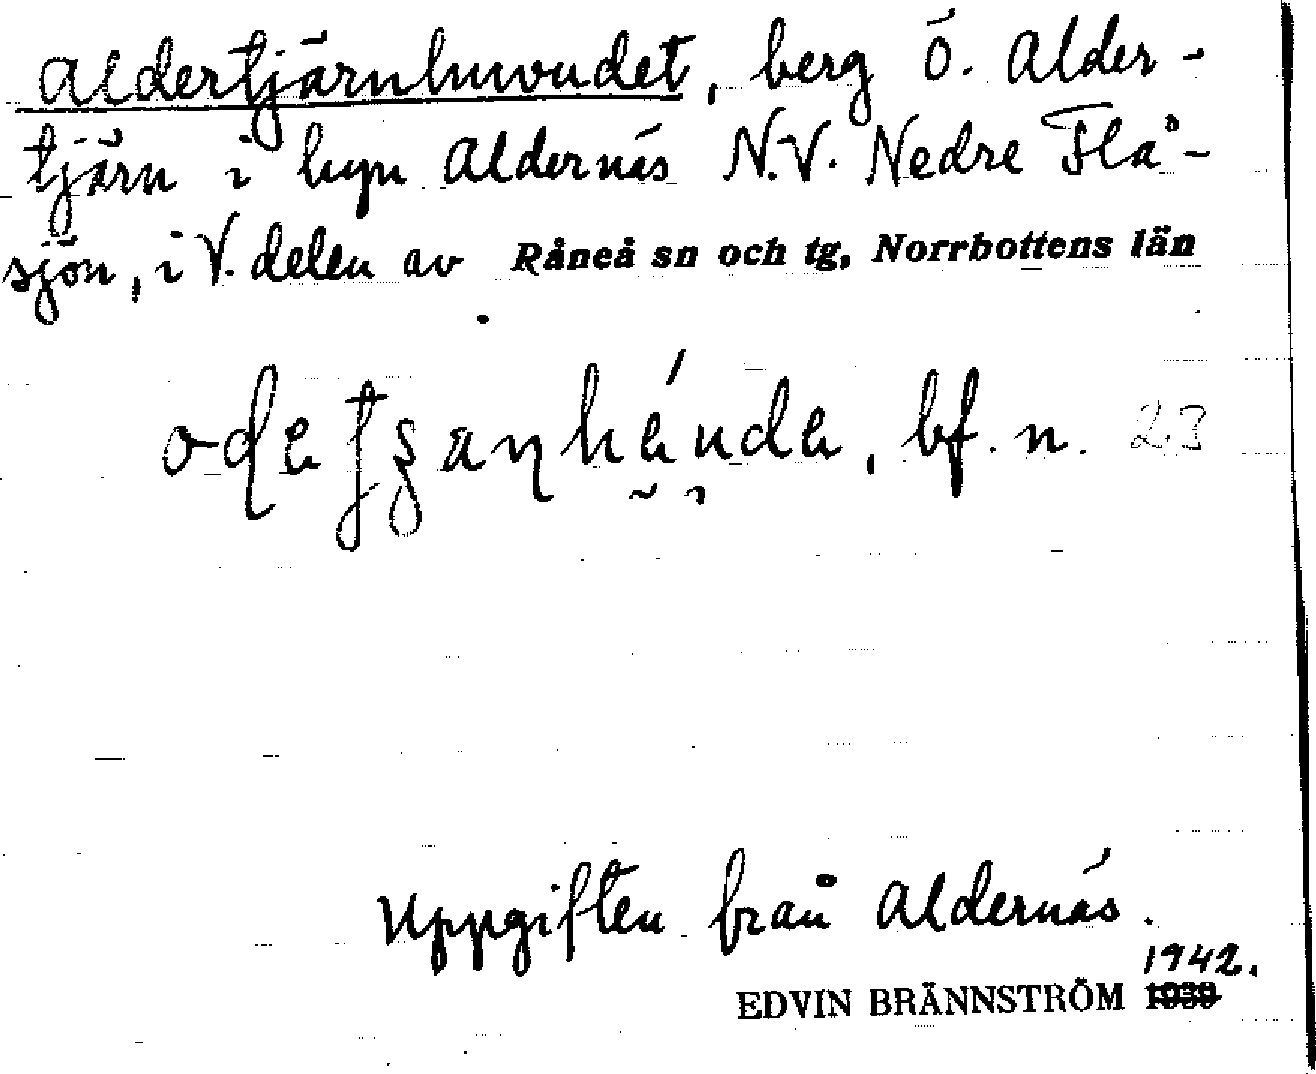 Aldertjärnhuvudet, berg Ö. Alder-
tjärn i byn Aldernäs N.V. Nedre Flå-
sjön, i V. delen av Råneå sn och tg, Norrbottens län
bf. n. 23
Uppgiften från Aldernäs.
1942.
EDVIN BRÄNNSTRÖM 1938